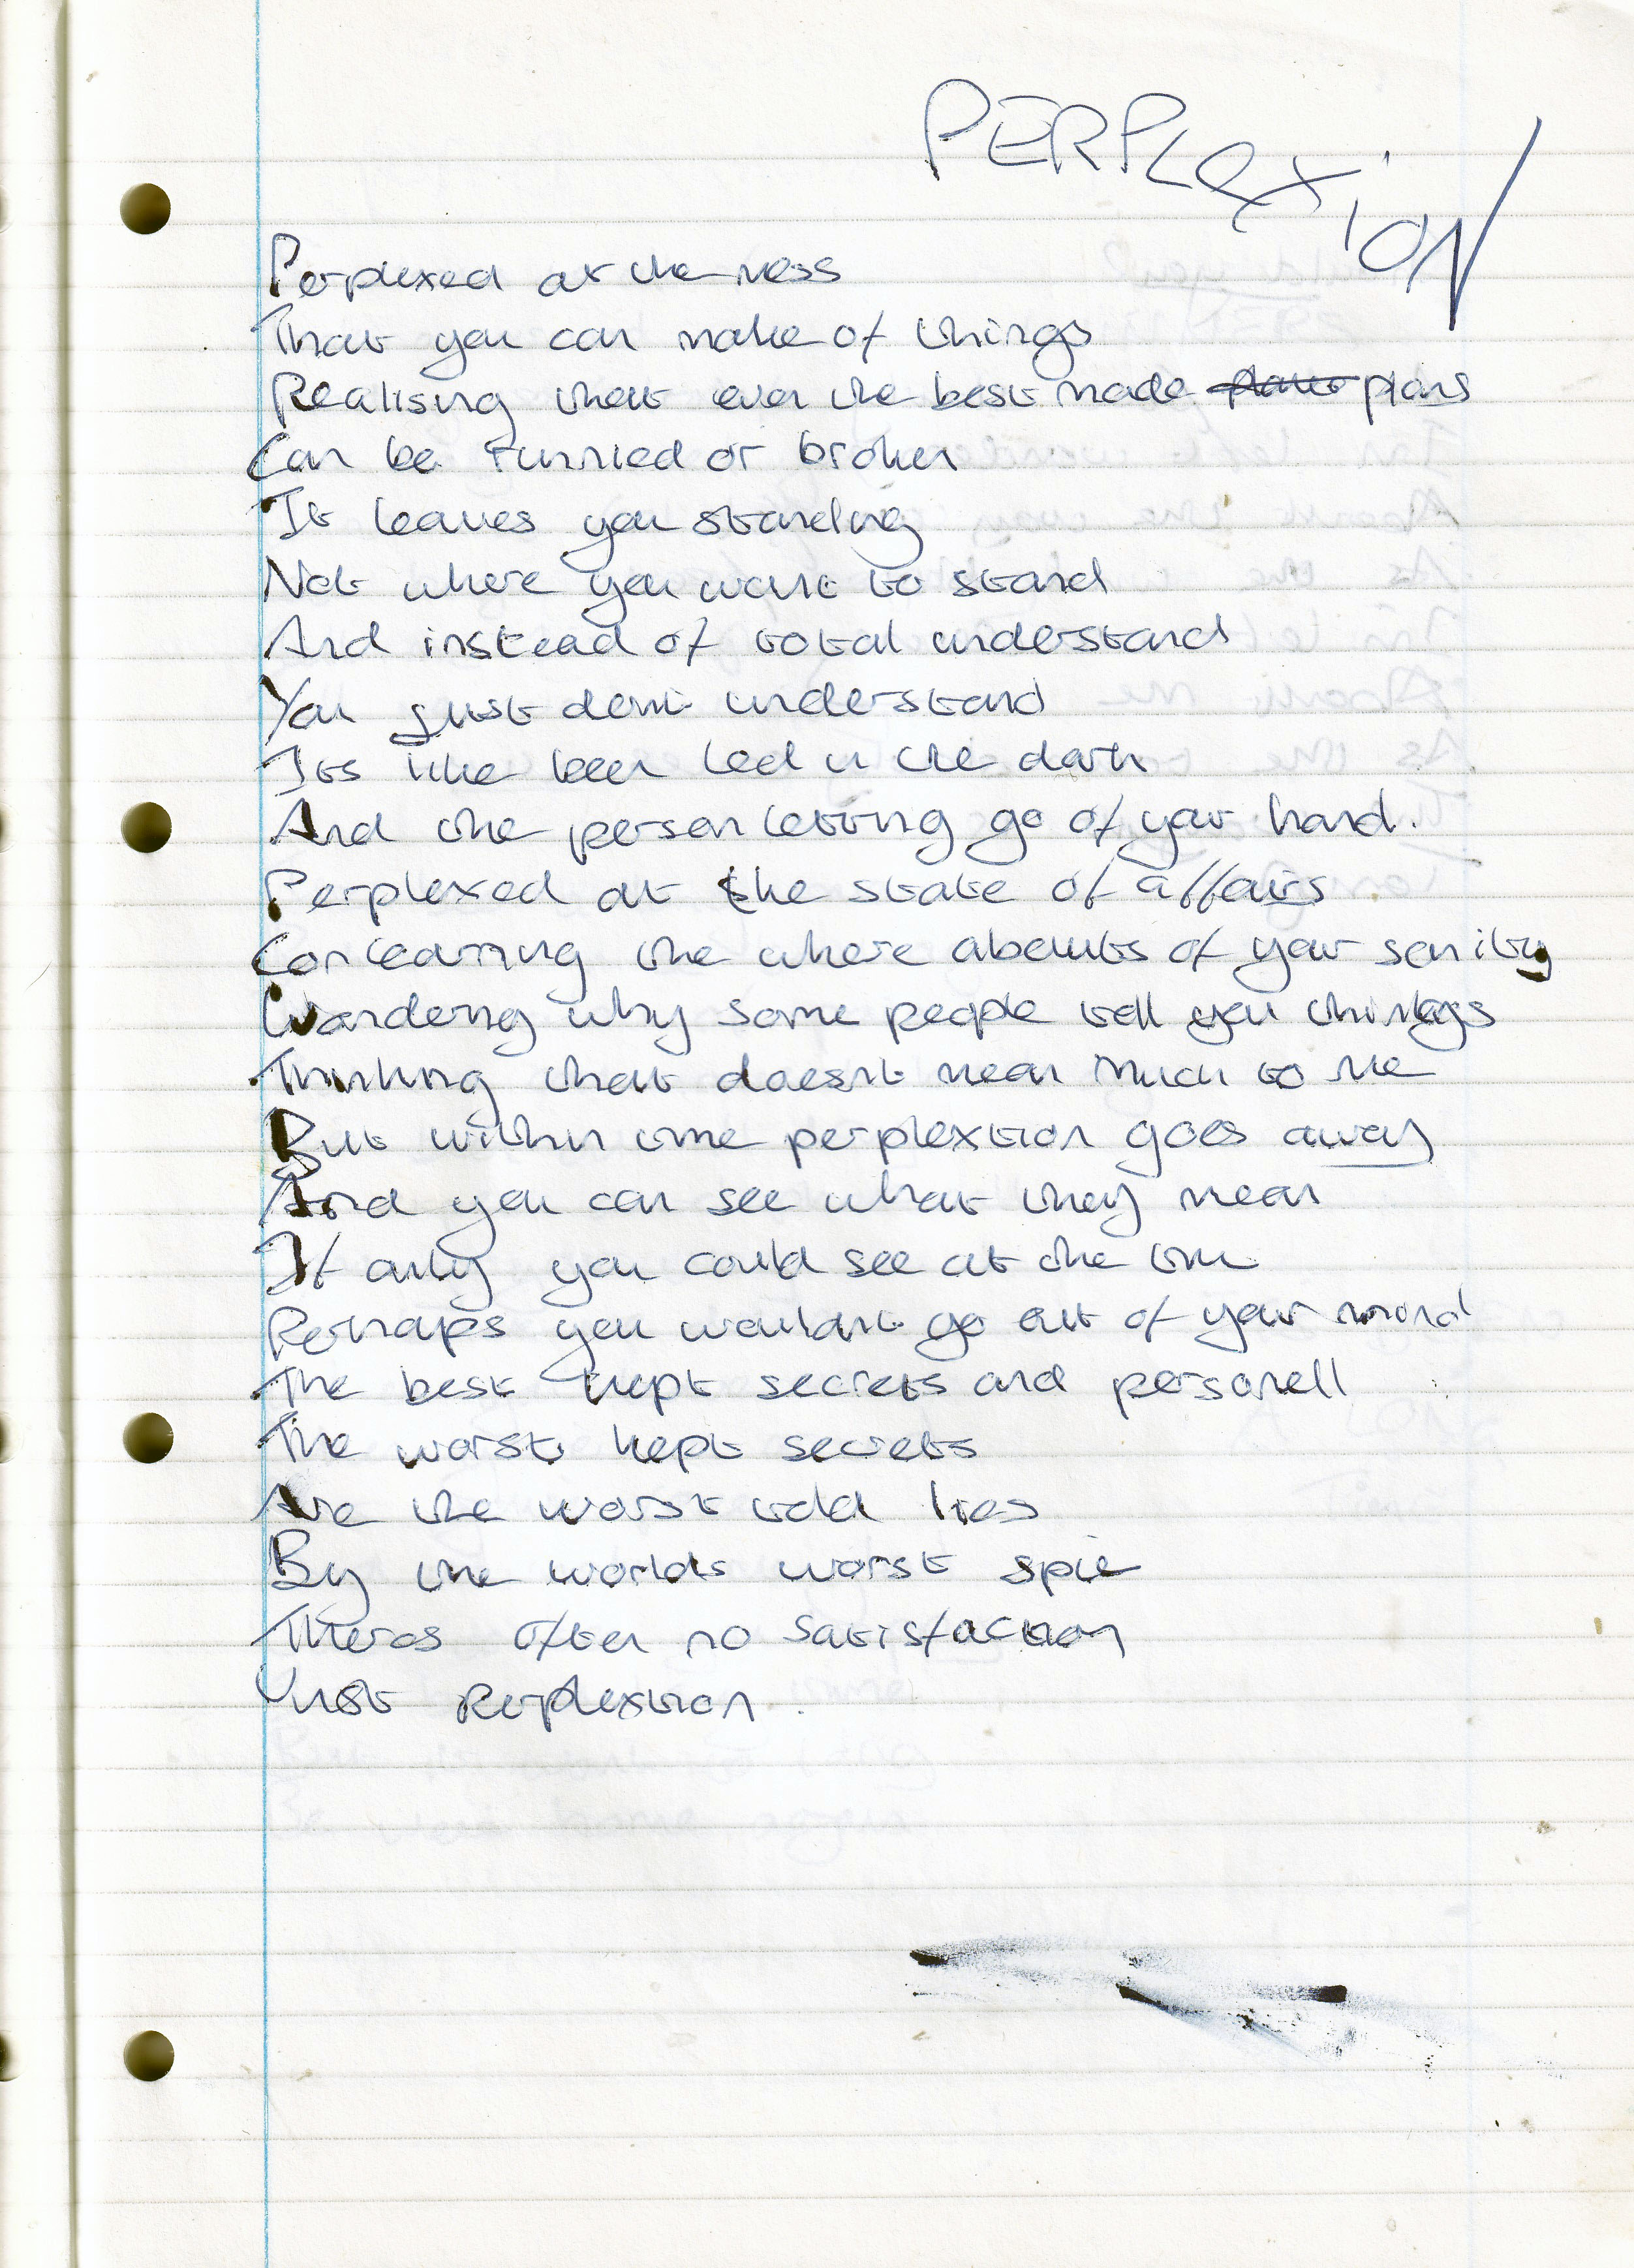 PERPLEXION
Perplexed at the mess
That you can make of things
Realising that even the best made plans
Can be runnied or broken
It leaves you standing
Not where you want to stand
And instead of total understand
You just dont understand
Its like been led in the dark
And the person letting go of your hand.
Perplexed at the state of affairs
Concearning the where abouts of your sanity
Wondering why some people tell you things
Thinking that doesnt mean much to me
But within time perplextion goes away
And you can see what they mean
If only you could see at the time
Perhaps you wouldnt go out of your mind
The best kept secrets and personell
The worst kept secrets
Are the worst told lies
By the worlds worst spie
Theres often no satisfaction
Just Perplextion.